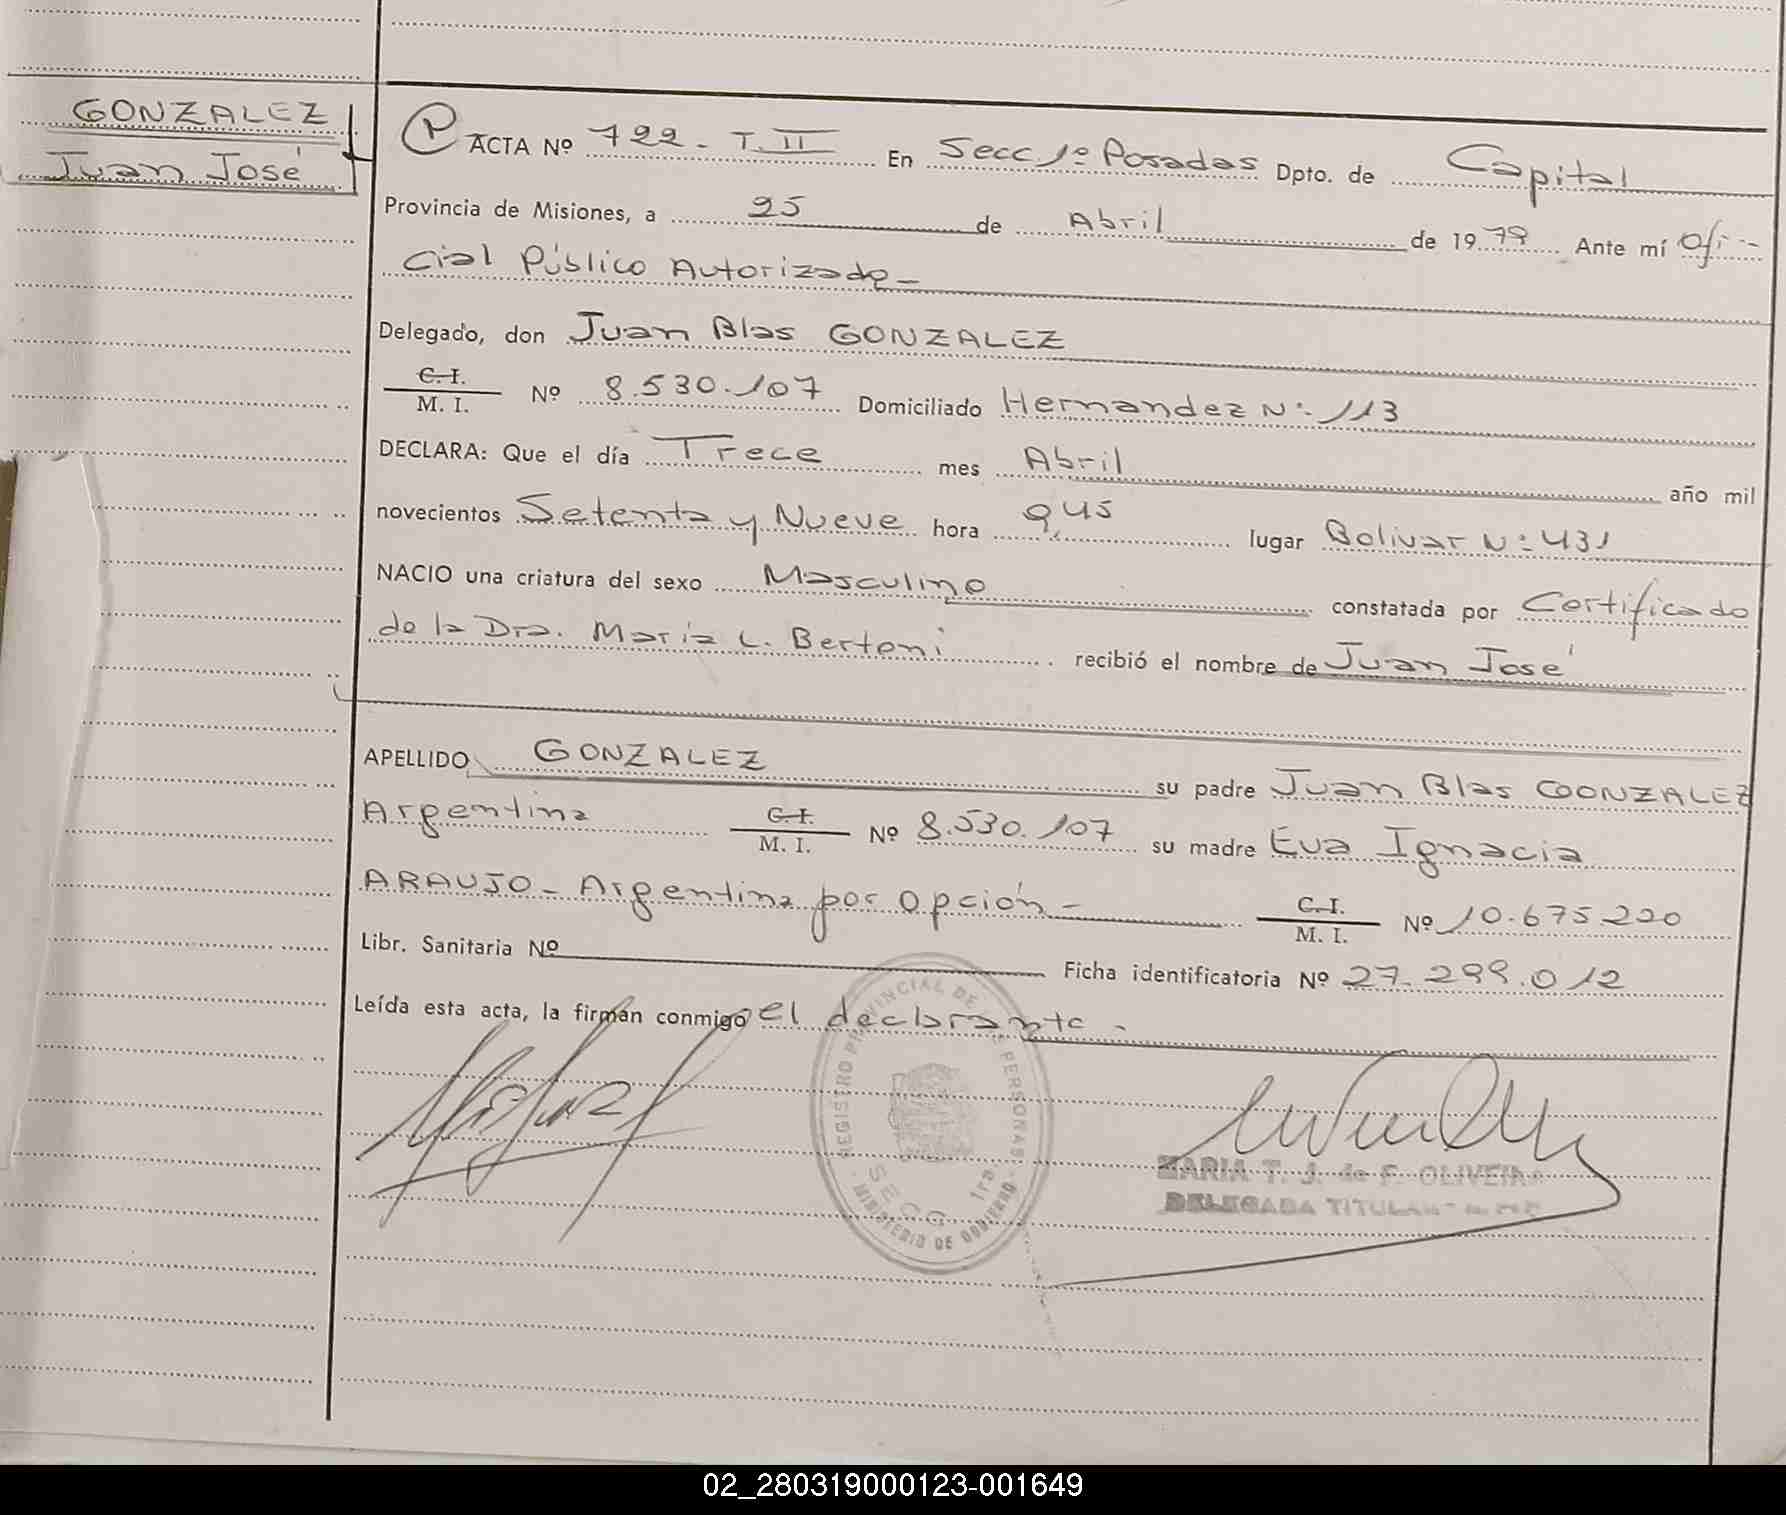 GONZALEZ
Juan José
P ACTA Nº 722 - T. II En Secc 1º Posadas Dpto. de Capital
Provincia de Misiones, a 25 de Abril de 1979 Ante mí Ofi-
cial Público Autorizado -
Delegado, don Juan Blas GONZALEZ
C. I.
M. I. Nº 8.530.107 Domiciliado Hernandez Nº 113
DECLARA: Que el día Trece mes Abril año mil
novecientos Setenta y Nueve hora 9,45 lugar Bolivar Nº 431
NACIO una criatura del sexo Masculino constatada por Certificado
de la Dra. Maria L. Bertoni recibió el nombre de Juan José
APELLIDO GONZALEZ su padre Juan Blas GONZALEZ
Argentina C. I.
M. I. Nº 8.530.107 su madre Eva Ignacia
ARAUJO - Argentina por opción - C. I.
M. I. Nº 10.675.220
Libr. Sanitaria Nº Ficha identificatoria Nº 27.299.012
Leída esta acta, la firman conmigo el declarante -
REGISTRO PROVINCIAL DE PERSONAS
SECC 1ra
MINISTERIO DE GOBIERNO
MARIA T. J. de F. OLIVEIRA
DELEGADA TITULAR
02_280319000123-001649